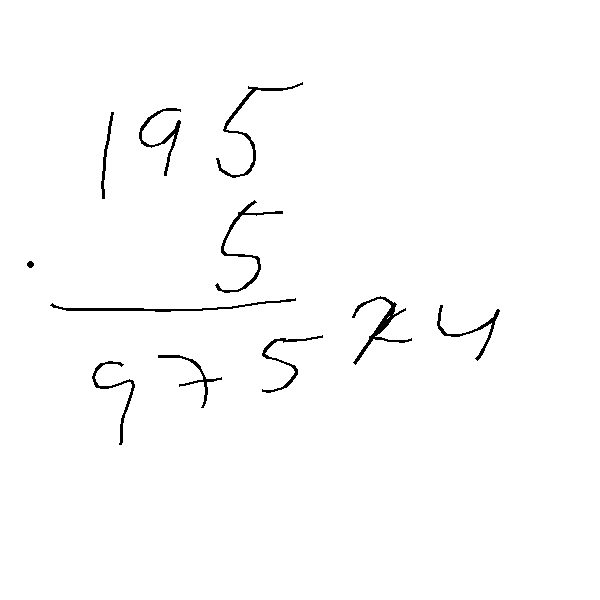 195
. 5
975 x 4